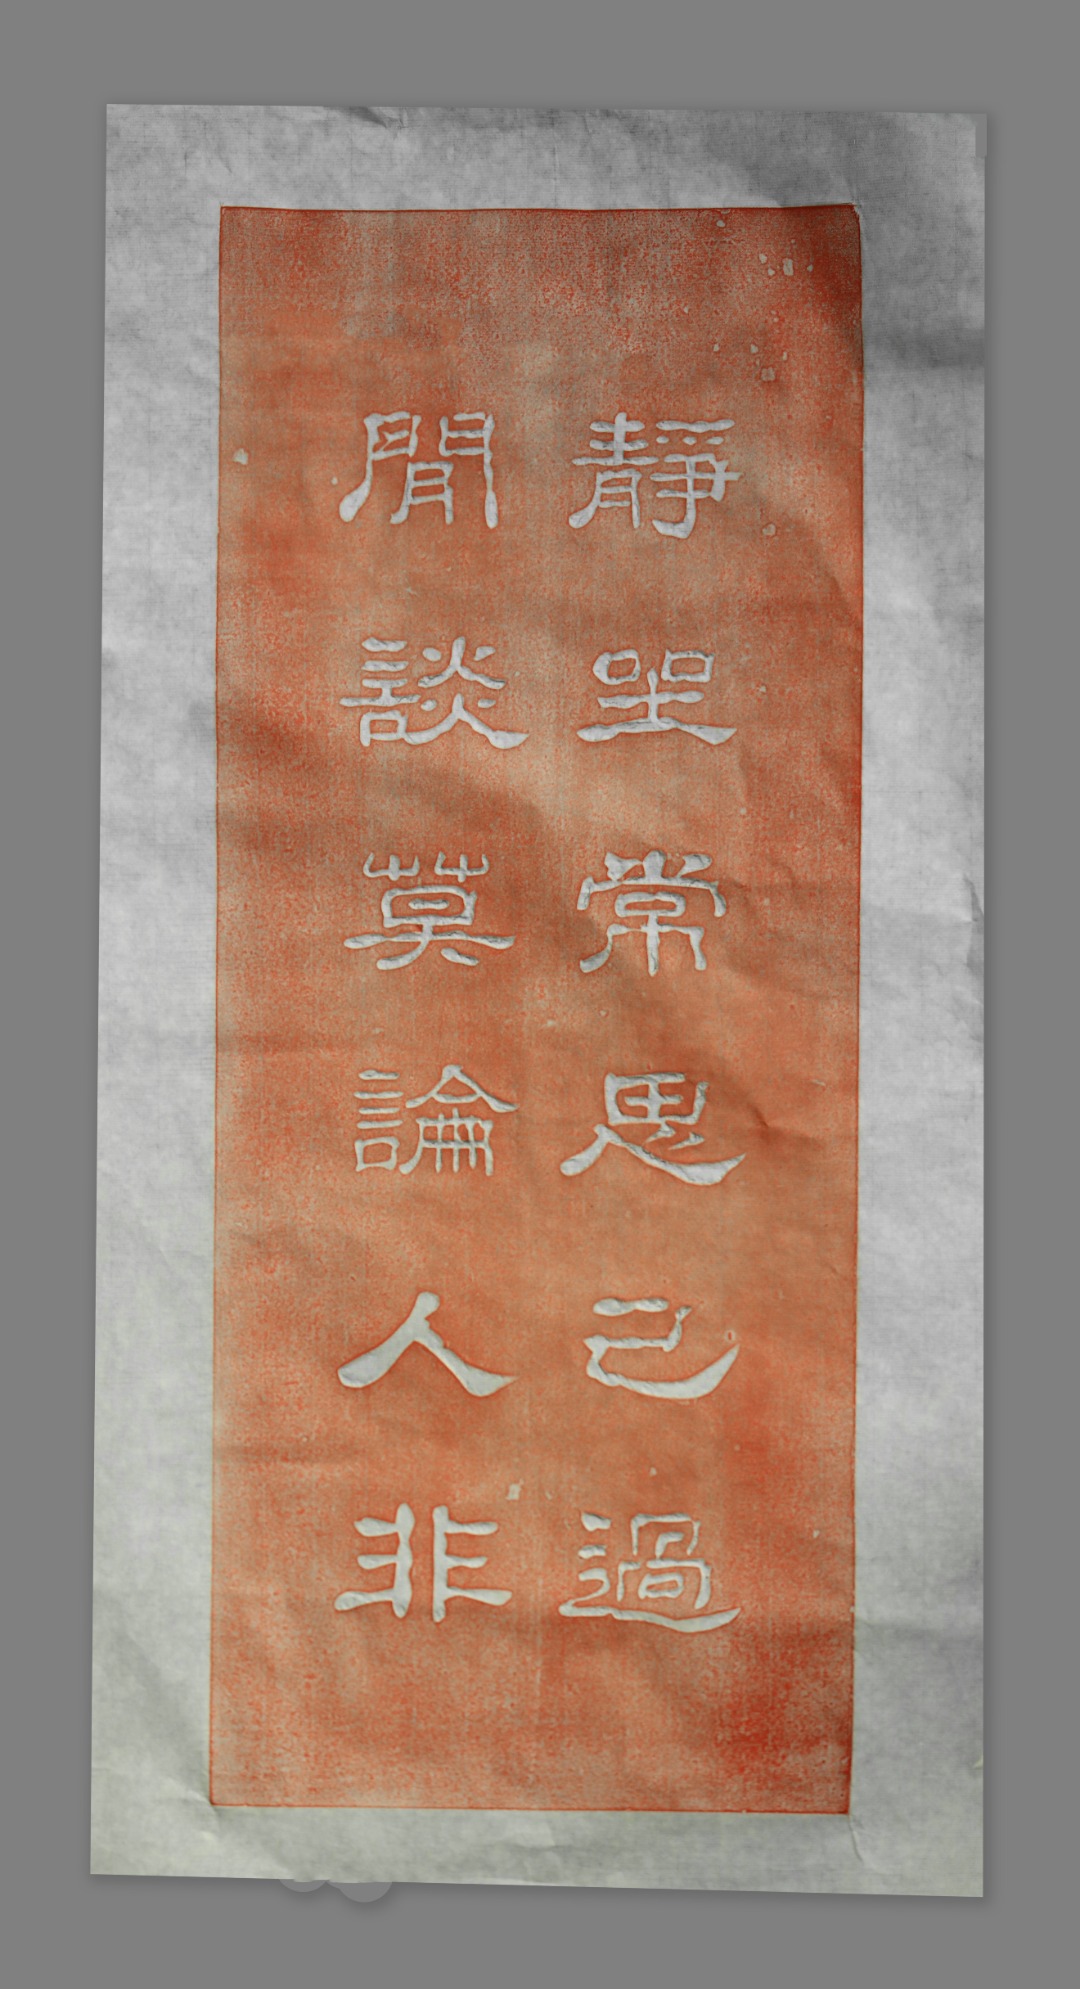 靜坐常思己過
閒談莫論人非